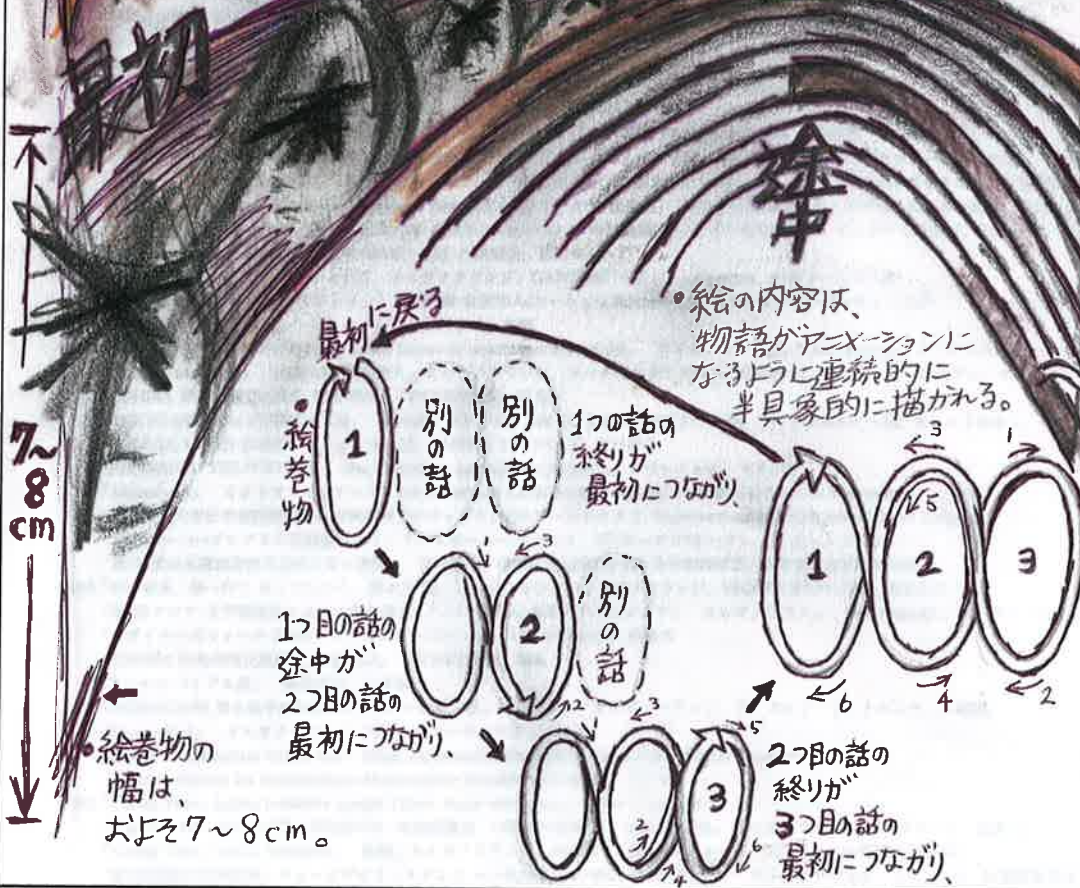 最初
途中
7~
8
cm
・絵の内容は、
物語がアニメーションに
なるように連続的に
半具象的に描かれる。
最初に戻る
・絵巻物
1
別の話
別の話
1つの話の
終りが
最初につながり
1つ目の話の
途中が
2つ目の話の
最初につながり、
3
2
1
2
別の話
1
3
2
4
3
5
6
2つ目の話の
終りが
3つ目の話の
最初につながり、
3
1
5
1
2
3
6
4
2
・絵巻物の
幅は、
およそ7~8cm。